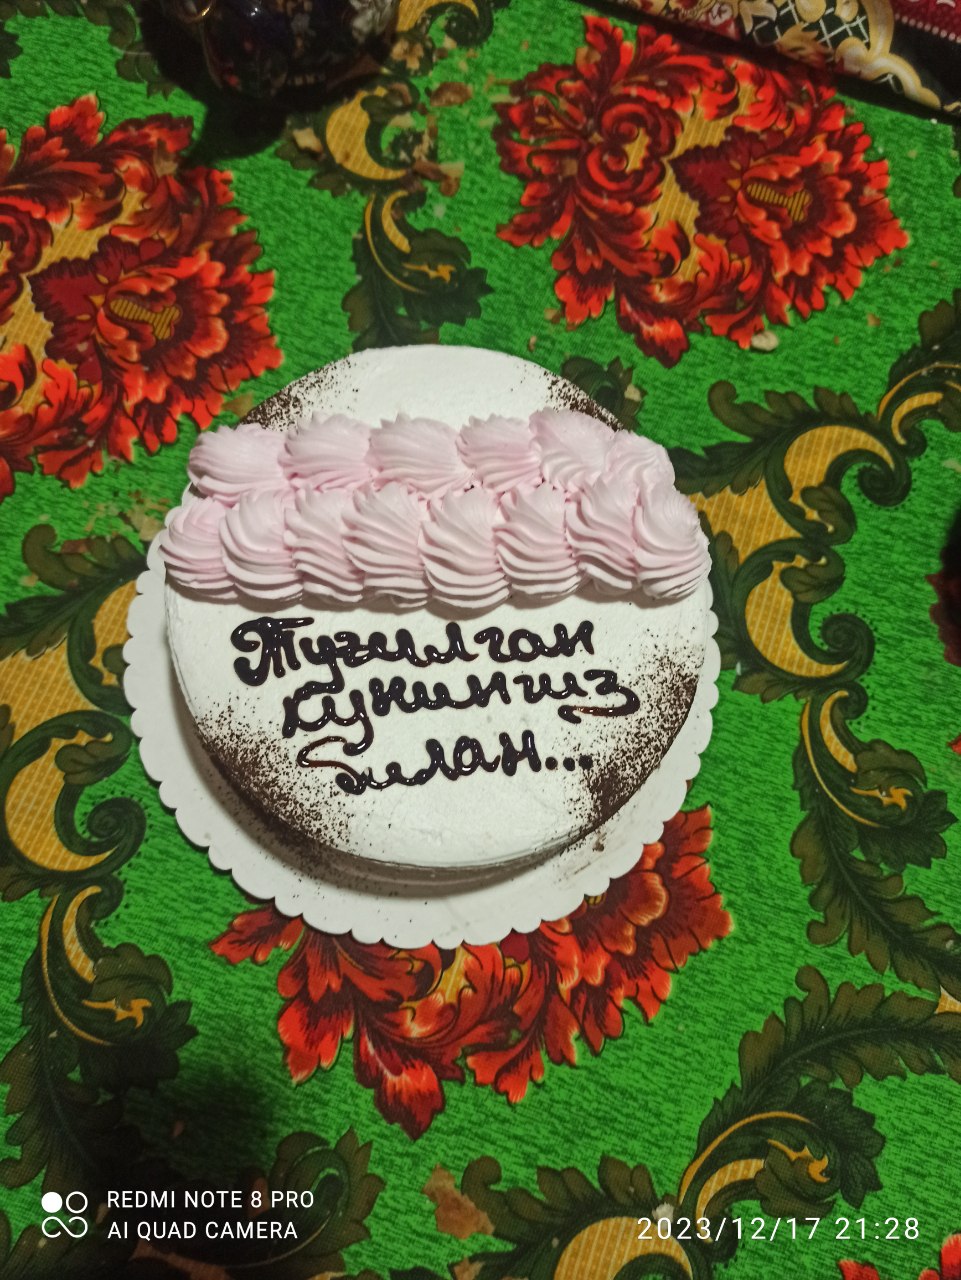 Туғилган
кунингиз
билан...
REDMI NOTE 8 PRO
AI QUAD CAMERA
2023/12/17 21:28